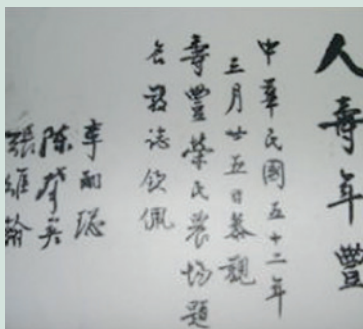 人壽年豐
中華民國五十二年
三月廿五日恭觀
壽豐榮民農場題
名誌欽佩
李耐
陳英
張維翰